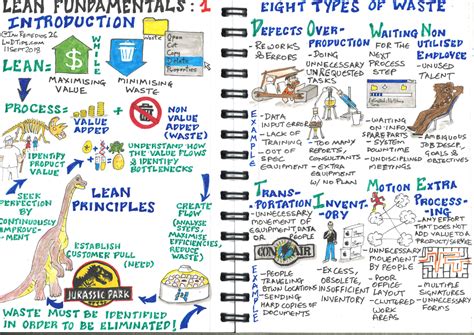 LEAN FUNDAMENTALS: 1
INTRODUCTION
11 SEPT 2018
LEAN=
WHILE
MAXIMISING
VALUE
MINIMISING
WASTE
Waste
Open
Cut
Hate
Properties
PROCESS=
VALUE
ADDED
+
NON
VALUE
ADDED
(WASTE)
IDENTIFY
PRODUCT
VALUE
UNDERSTAND HOW THE
VALUE FLOWS &
IDENTIFY
BOTTLENECKS
LEAN
PRINCIPLES
SEEK
PERFECTION
BY
CONTINUOUS
IMPROVE-
MENT
CREATE
FLOW
(ANALYSE
STEPS,
MAXIMISE
EFFICIENCIES,
REDUCE
WASTE)
ESTABLISH
CUSTOMER PULL
(NEED)
JURASSIC PARK
WASTE MUST BE IDENTIFIED
IN ORDER TO BE ELIMINATED!
EIGHT TYPES OF WASTE
DEFECTS
-REWORKS
& ERRORS
EXAMPLE
-DATA
INPUT ERROR
-LACK OF
TRAINING
-OUT OF
SPEC
EQUIPMENT
OVER-
PRODUCTION
-DOING
UNNECESSARY
UNREQUESTED
TASKS
-TOO MANY
REPORTS,
CONSULTANTS
-EXTRA
EQUIPMENT
W/ NO PLAN
WAITING
FOR THE
NEXT
PROCESS
STEP
-WAITING
ON INFO,
SPARE PARTS
-SYSTEM
DOWNTIME
-UNDISCIPLINED
MEETINGS
NON
UTILISED
EMPLOYEE
-UNUSED
TALENT
-AMBIGUOUS
JOB DESCR.
GOALS OR
STRATEGY
TRANS-
PORTATION
-UNNECESSARY
MOVEMENT OF
EQUIPMENT, DATA
OR PEOPLE
CON AIR
EXAMPLE
-PEOPLE
TRAVELING
BETWEEN
LOCATIONS
-SENDING
HARD COPIES OF
DOCUMENTS
INVENT-
ORY
-EXCESS,
OBSOLETE,
INSUFFICIENT
INVENTORY
MOTION
-UNNECESSARY
MOVEMENT
BY PEOPLE
-POOR
OFFICE
LAYOUT
-CLUTTERED
WORK
AREAS
EXTRA
PROCESS-
ING
-ANY EFFORT
THAT DOES
NOT ADD
VALUE TO A
PRODUCT/SERVICE
-MULTIPLE
SIGNATURES
-UNNECESSARY
FORMS